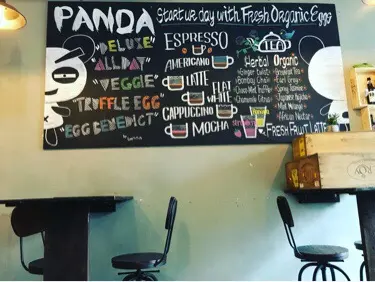 PANDA
Start ur day with Fresh Organic Eggs
"DELUXE"
"ALL DAY"
"VEGGIE"
"TRUFFLE EGG"
"EGG BENEDICT"
ESPRESSO
AMERICANO
LATTE
FLAT WHITE
CAPPUCCINO
MOCHA
TEA
Herbal
Organic
Ginger Twist
Bombay Chai
Choco Mint Truffle
Chamomile Citrus
Breakfast Tea
Earl Grey
Spring Jasmine
Mint Melange
African Nectar
FRESH FRUIT LATTE